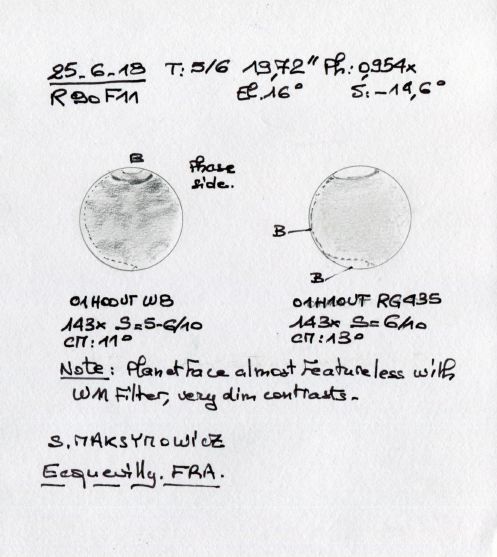 25-6-18 T: 5/6 19,72" Ph: 0,954x
R 90 F11 El. 16° S: -14,6°
B
Phase
side.
B
B
01H00UT
01H10UT
143x S=5-6/10
143x S=6/10
CM: 11°
CM: 13°
Note: Planet Face almost Featureless with
Filter, very dim contrasts.
S. MAKSYMOWICZ
Ecquevilly. FRA.